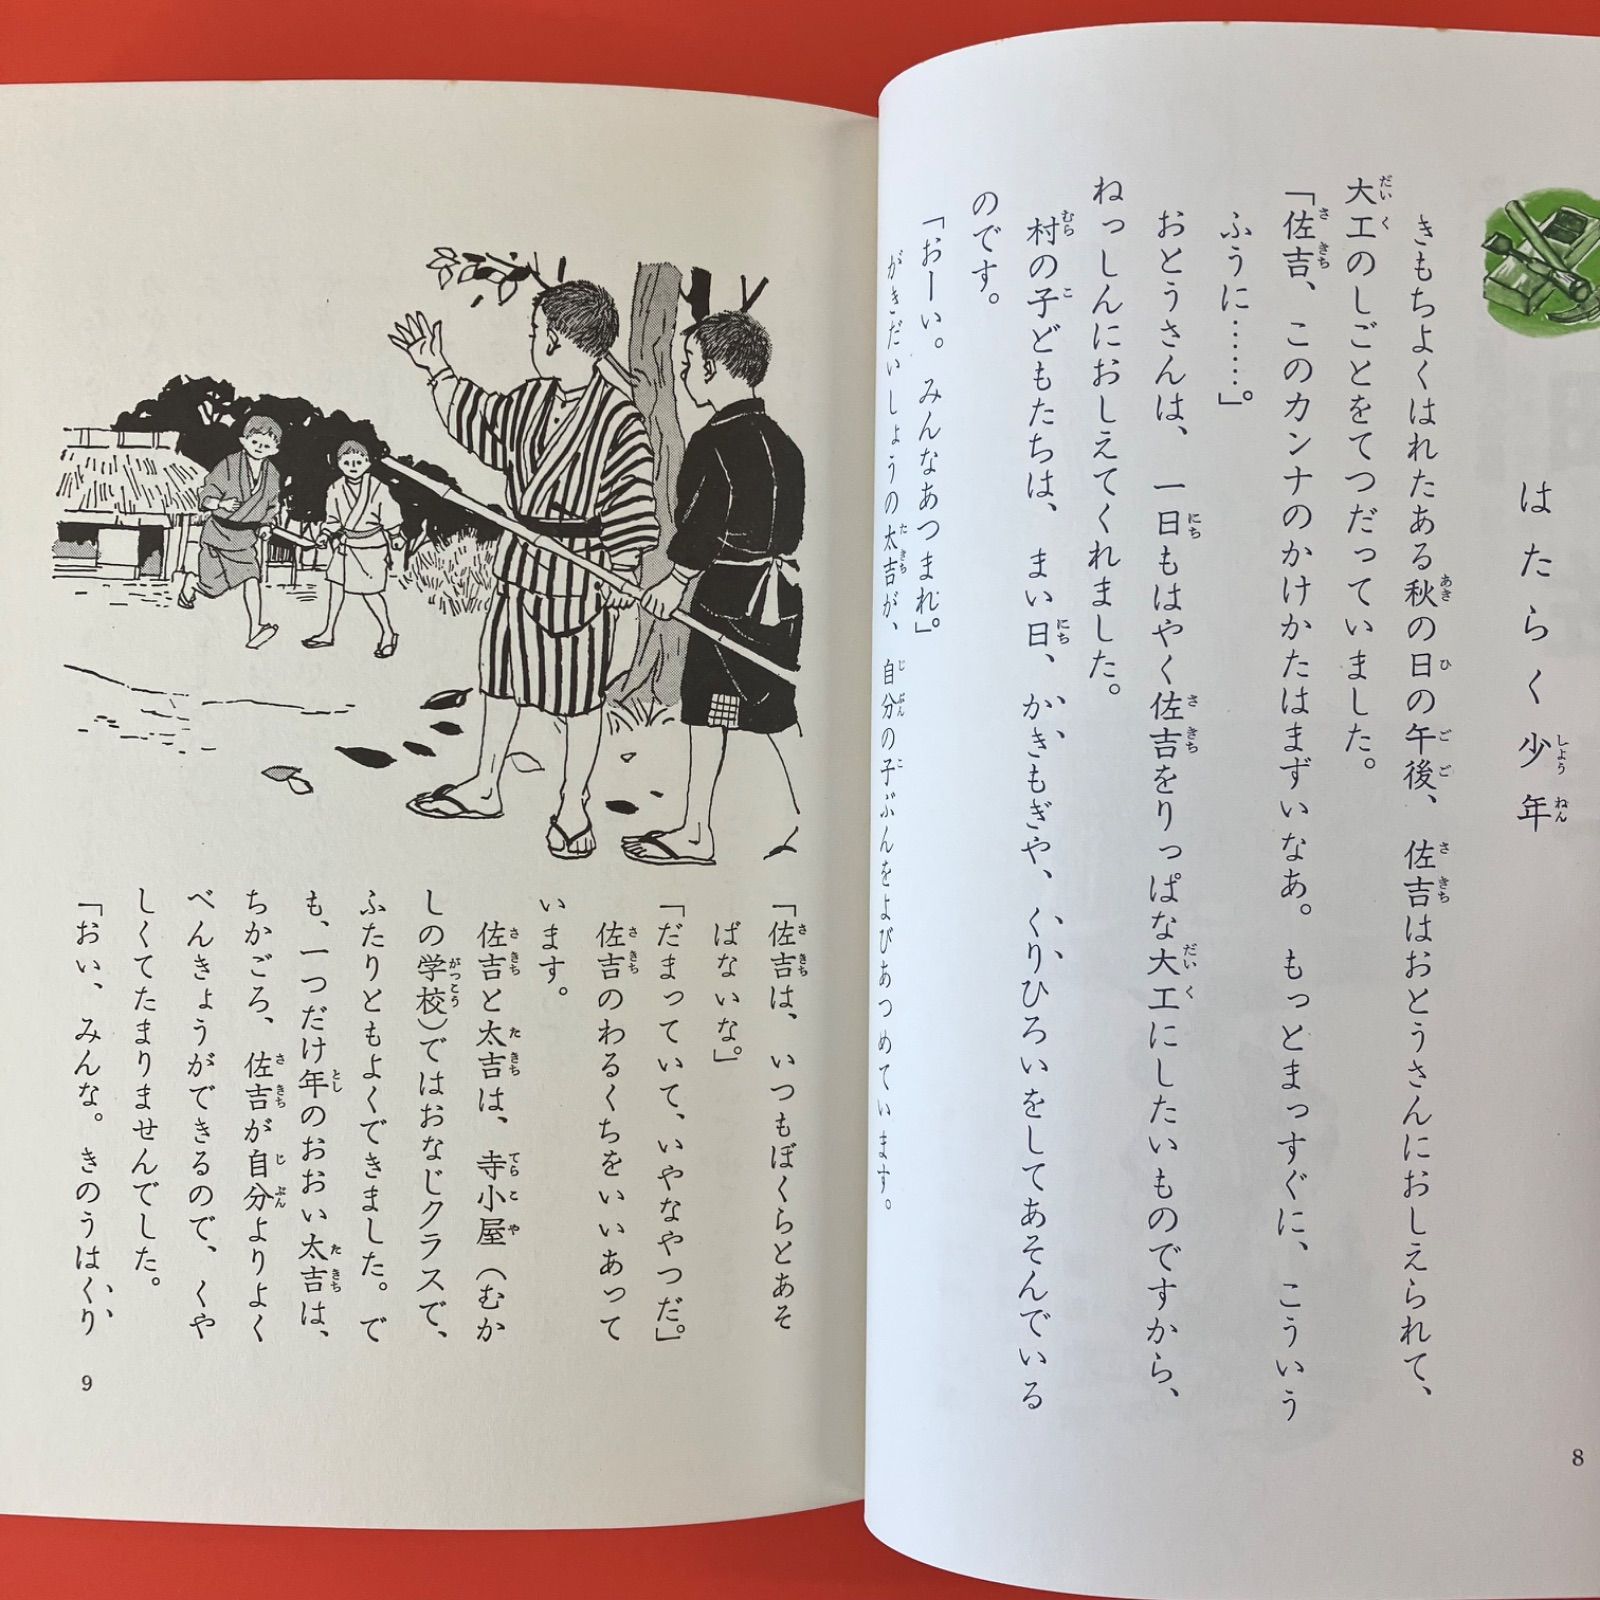 はたらく少年
しょうねん
きもちよくはれたある秋の日の午後、佐吉はおとうさんにおしえられて、
あき ひ ごご さきち
大工のしごとをてつだっていました。
だいく
「佐吉、このカンナのかけかたはまずいなあ。もっとまっすぐに、こういう
さきち
ふうに……。」
おとうさんは、一日もはやく佐吉をりっぱな大工にしたいものですから、
にち さきち だいく
ねっしんにおしえてくれました。
村の子どもたちは、まい日、かきもぎや、くりひろいをしてあそんでいる
むら こ にち
のです。
「おーい。みんなあつまれ。」
がきだいしょうの太吉が、自分の子ぶんをよびあつめています。
たきち じぶん こ
8
「佐吉は、いつもぼくらとあそ
さきち
ばないな。」
「だまっていて、いやなやつだ。」
佐吉のわるくちをいいあって
さきち
います。
佐吉と太吉は、寺小屋（むか
さきち たきち てらこや
しの学校）ではおなじクラスで、
がっこう
ふたりともよくできました。で
も、一つだけ年のおおい太吉は、
とし たきち
ちかごろ、佐吉が自分よりよく
さきち じぶん
べんきょうができるので、くや
しくてたまりませんでした。
「おい、みんな。きのうはくり
9